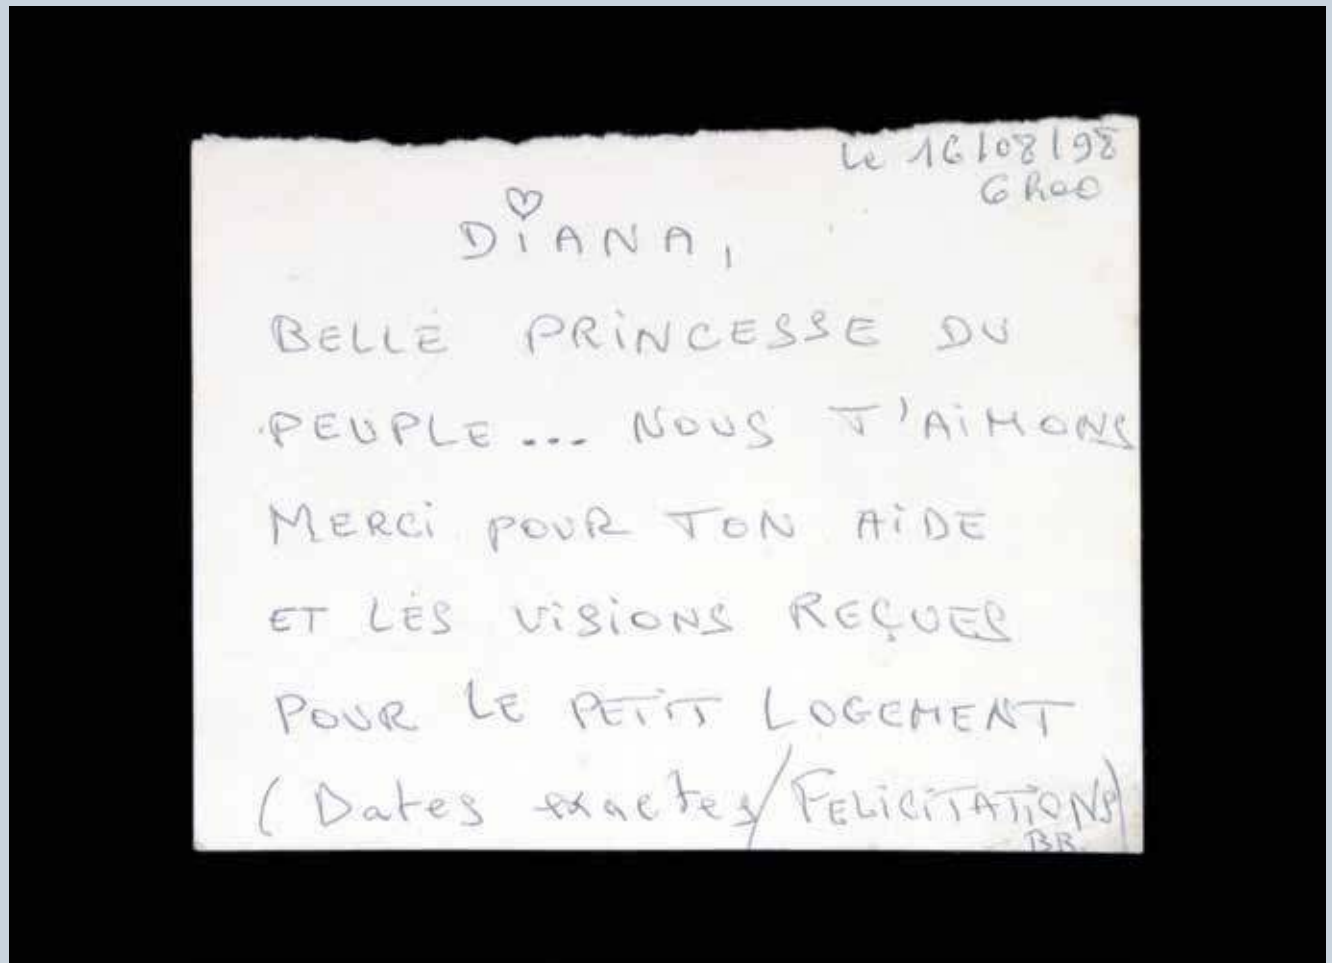 Le 16/08/98
6h00
DiANA,
BELLE PRiNCESSE DU
PEUPLE... NOUS T'AiMONS
MERCi POUR TON AiDE
ET LES ViSiONS REÇUES
POUR LE PETiT LOGEMENT
(Dates exactes/FELiCiTATiONS)
BB.